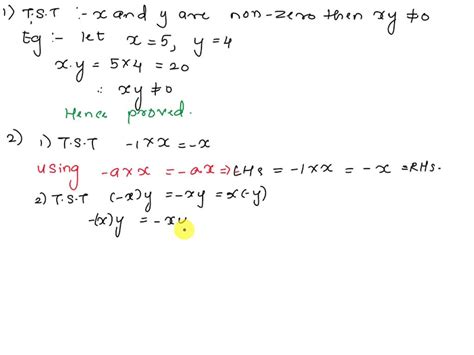 1) T.S.T :- x and y are non-zero then xy ≠0
Eg :- let x=5, y=4
x.y = 5×4 = 20
∴ xy ≠0
Hence proved.
2) 1) T.S.T -1×x = -x
using -a×x = -ax ⇒ LHS = -1×x = -x =RHS.
2) T.S.T (-x)y = -xy = x(-y)
-(x)y = -xy